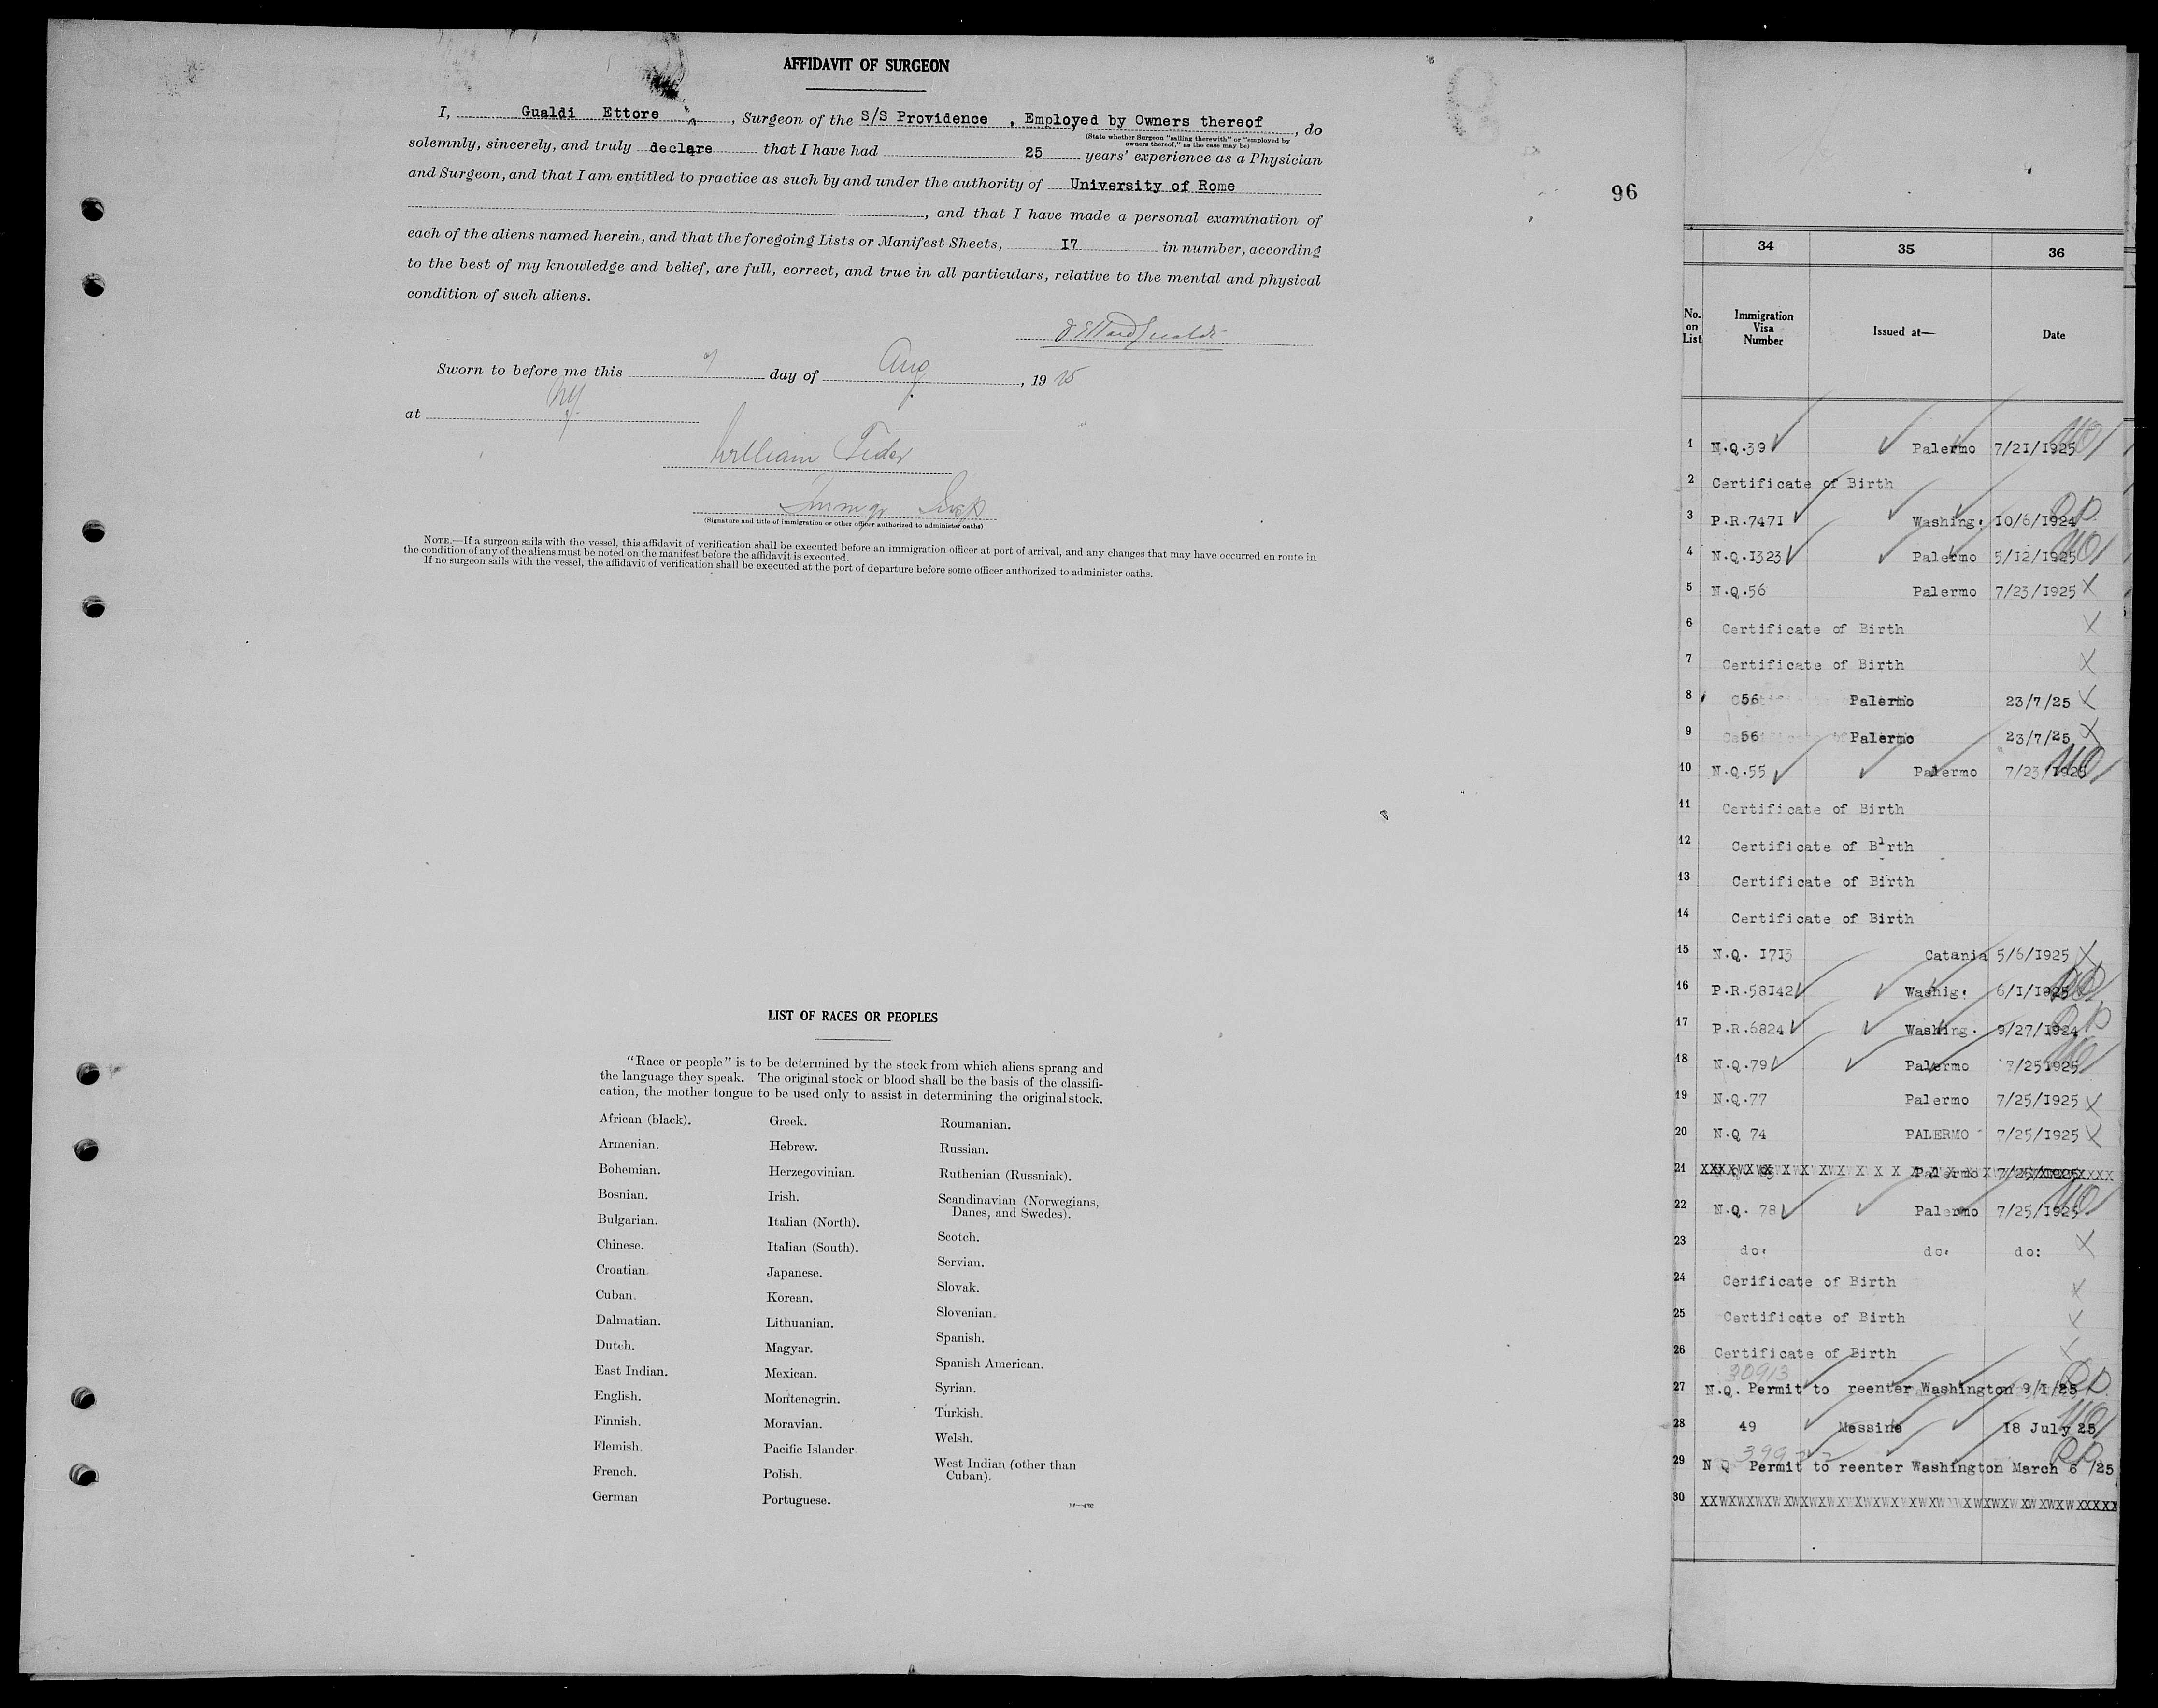 AFFIDAVIT OF SURGEON
I, Gualdi Ettore, Surgeon of the S/S Providence, Employed by Owners thereof, do
(State whether Surgeon "sailing therewith" or "employed by
owners thereof," as the case may be)
solemnly, sincerely, and truly declare that I have had 25 years' experience as a Physician
and Surgeon, and that I am entitled to practice as such by and under the authority of University of Rome
, and that I have made a personal examination of
each of the aliens named herein, and that the foregoing Lists or Manifest Sheets, I7 in number, according
to the best of my knowledge and belief, are full, correct, and true in all particulars, relative to the mental and physical
condition of such aliens.
Sworn to before me this day of Aug, 1925
at NY
William
Immgr Insp
(Signature and title of immigration or other officer authorized to administer oaths)
NOTE.—If a surgeon sails with the vessel, this affidavit of verification shall be executed before an immigration officer at port of arrival, and any changes that may have occurred en route in
the condition of any of the aliens must be noted on the manifest before the affidavit is executed.
If no surgeon sails with the vessel, the affidavit of verification shall be executed at the port of departure before some officer authorized to administer oaths.
96
LIST OF RACES OR PEOPLES
"Race or people" is to be determined by the stock from which aliens sprang and
the language they speak. The original stock or blood shall be the basis of the classifi-
cation, the mother tongue to be used only to assist in determining the original stock.
African (black).
Armenian.
Bohemian.
Bosnian.
Bulgarian.
Chinese.
Croatian.
Cuban.
Dalmatian.
Dutch.
East Indian.
English.
Finnish.
Flemish.
French.
German
Greek.
Hebrew.
Herzegovinian.
Irish.
Italian (North).
Italian (South).
Japanese.
Korean.
Lithuanian.
Magyar.
Mexican.
Montenegrin.
Moravian.
Pacific Islander
Polish.
Portuguese.
Roumanian.
Russian.
Ruthenian (Russniak).
Scandinavian (Norwegians,
Danes, and Swedes).
Scotch.
Servian.
Slovak.
Slovenian.
Spanish.
Spanish American.
Syrian.
Turkish.
Welsh.
West Indian (other than
Cuban).
34 35 36
No.
on
List
Immigration
Visa
Number
Issued at—
Date
1 N.Q.39 Palermo 7/2I/I925
2 Certificate of Birth
3 P.R.747I Washing. IO/6/I924 RP
4 N.Q.I323 Palermo 5/I2/I925
5 N.Q.56 Palermo 7/23/I925 X
6 Certificate of Birth X
7 Certificate of Birth X
8 56 Palermo 23/7/25 X
9 56 Palermo 23/7/25 X
10 N.Q.55 Palermo 7/23/I925
11 Certificate of Birth
12 Certificate of Birth
13 Certificate of Birth
14 Certificate of Birth
15 N.Q. I7I3 Catania 5/6/I925 X
16 P.R.58I42 Washig. 6/I/I925
17 P.R.6824 Washing. 9/27/I924 RP
18 N.Q.79 Palermo 7/25I925
19 N.Q.77 Palermo 7/25/I925 X
20 N.Q 74 PALERMO 7/25/I925 X
21 Palermo 7/25/I925
22 N.Q. 78 Palermo 7/25/I925
23 do. do. do: X
24 Cerificate of Birth X
25 Certificate of Birth X
26 Certificate of Birth X
30913
27 N.Q. Permit to reenter Washington 9/I/25 RP
28 49 Messine I8 July 25
29 N Q Permit to reenter Washington March 6 /25 RP
30